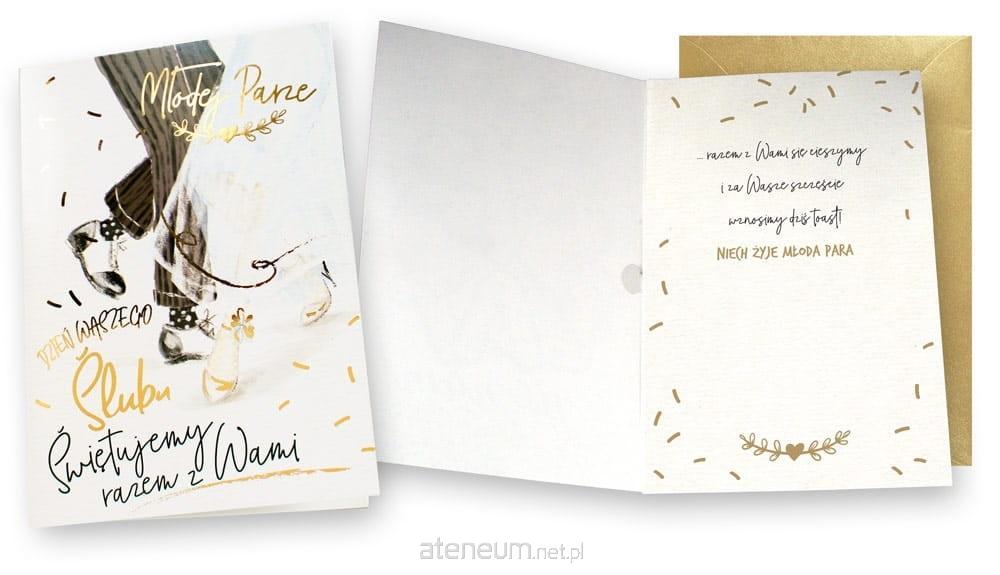 Młodej Parze
DZIEŃ WASZEGO
Ślubu
Świętujemy
razem z Wami
... razem z Wami się cieszymy
i za Wasze szczęście
wznosimy dziś toast!
NIECH ŻYJE MŁODA PARA
ateneum.net.pl